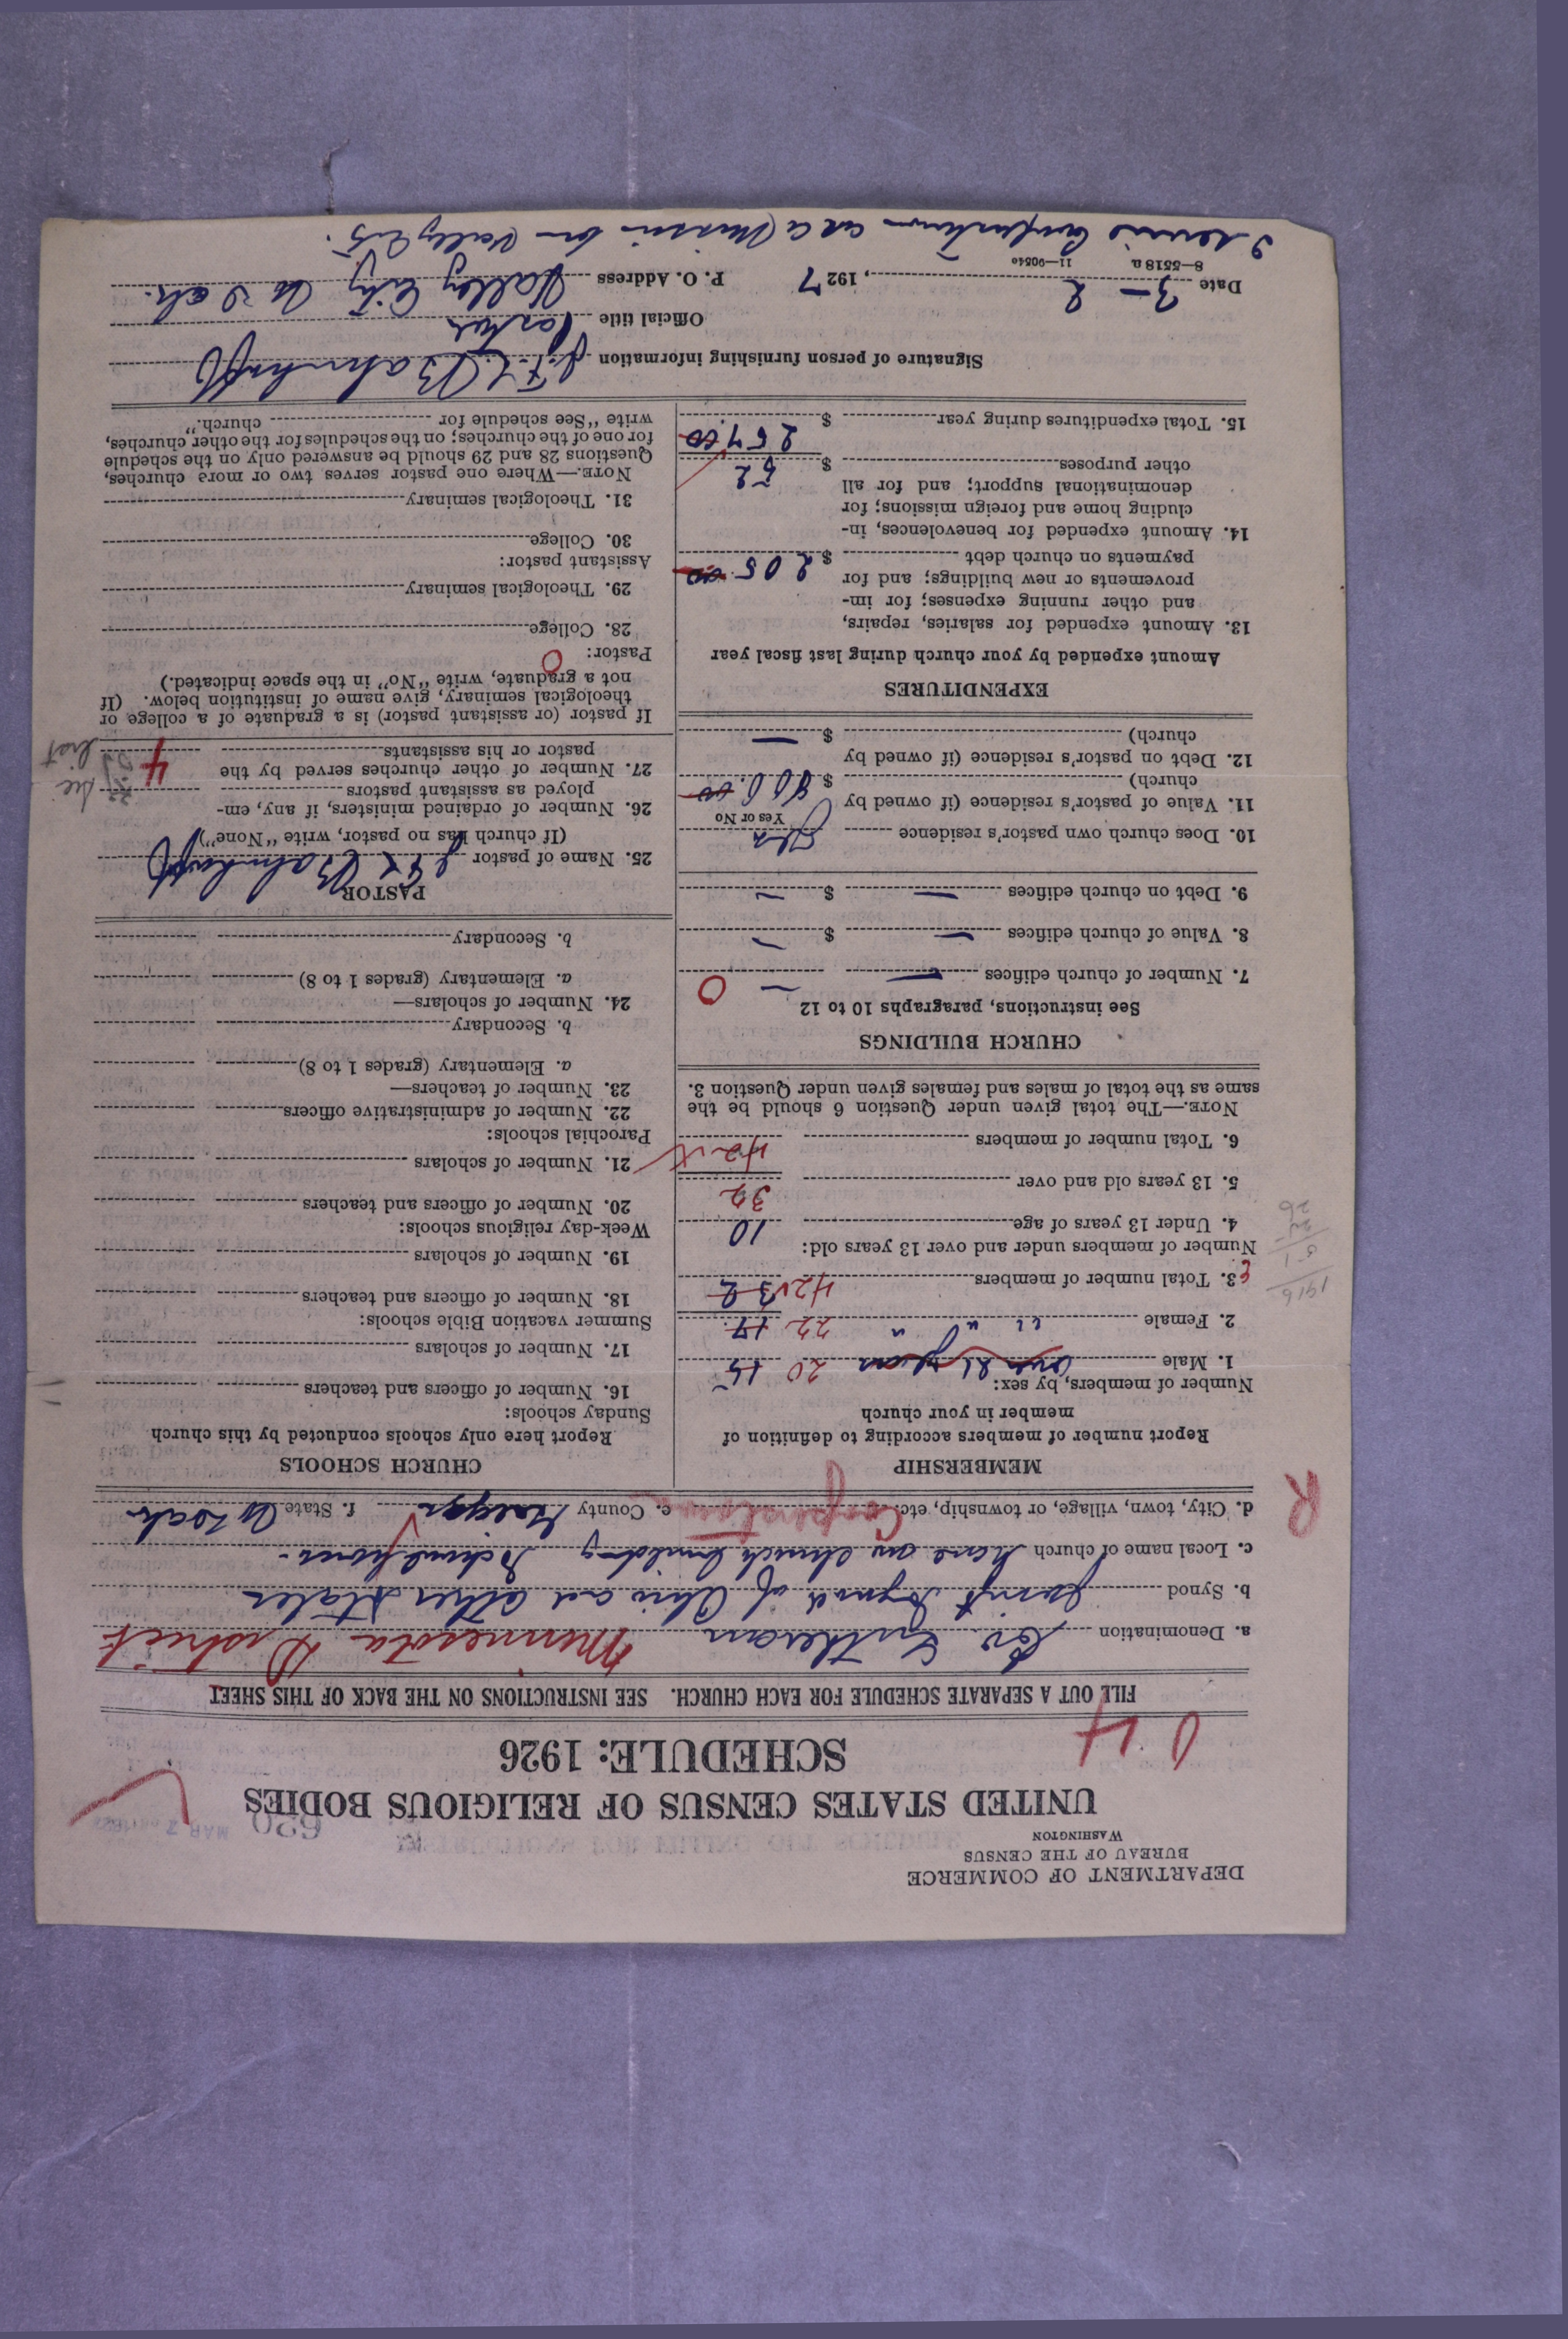 DEPARTMENT OF COMMERCE
BUREAU OF THE CENSUS
WASHINGTON
MAR 7
630
UNITED STATES CENSUS OF RELIGIOUS BODIES
SCHEDULE: 1926
FILE OUT A SEPARATE SCHEDULE FOR EACH CHURCH. SEE INSTRUCTIONS ON THE BACK OF THIS SHEET
a. Denomination Ev Lutheran Minnesota District
b. Synod Joint Synod of Ohio and other States
c. Local name of church have no church building
d. City, town, village, or township, etc. Cooperstown e. County Griggs f. State No Dak
R
MEMBERSHIP
Report number of members according to definition of
member in your church
Number of members, by sex:
1. Male over 21 years 20 15
2. Female " " " 22 17
3. Total number of members 42 32
Number of members under and over 13 years old:
4. Under 13 years of age 10
5. 13 years old and over 32
6. Total number of members 42
NOTE.—The total given under Question 6 should be the
same as the total of males and females given under Question 3.
1916
51
26
CHURCH BUILDINGS
See instructions, paragraphs 10 to 12
7. Number of church edifices — — 0
8. Value of church edifices — $ —
9. Debt on church edifices — $ —
10. Does church own pastor's residence
Yes or No
11. Value of pastor's residence (if owned by
church) $
12. Debt on pastor's residence (if owned by
church) $ —
EXPENDITURES
Amount expended by your church during last fiscal year
13. Amount expended for salaries, repairs,
and other running expenses; for im-
provements or new buildings; and for
payments on church debt $ 205.00
14. Amount expended for benevolences, in-
cluding home and foreign missions; for
denominational support; and for all
other purposes $ 52
15. Total expenditures during year $ 257.00
CHURCH SCHOOLS
Report here only schools conducted by this church
Sunday schools:
16. Number of officers and teachers
17. Number of scholars
Summer vacation Bible schools:
18. Number of officers and teachers
19. Number of scholars
Week-day religious schools:
20. Number of officers and teachers
21. Number of scholars
Parochial schools:
22. Number of administrative officers
23. Number of teachers—
a. Elementary (grades 1 to 8)
b. Secondary
24. Number of scholars—
a. Elementary (grades 1 to 8)
b. Secondary
PASTOR
25. Name of pastor
(If church has no pastor, write "None")
26. Number of ordained ministers, if any, em-
ployed as assistant pastors
27. Number of other churches served by the
pastor or his assistants 4
see list
If pastor (or assistant pastor) is a graduate of a college or
theological seminary, give name of institution below. (If
not a graduate, write "No" in the space indicated.)
Pastor: 0
28. College
29. Theological seminary
Assistant pastor:
30. College
31. Theological seminary
NOTE.—Where one pastor serves two or more churches,
Questions 28 and 29 should be answered only on the schedule
for one of the churches; on the schedules for the other churches,
write "See schedule for church."
Signature of person furnishing information
Official title Pastor
Date 3-2, 1927 P. O. Address Valley City No Dak.
8—5518 a 11—90540
I serve Cooperstown as a Mission from Valley City.